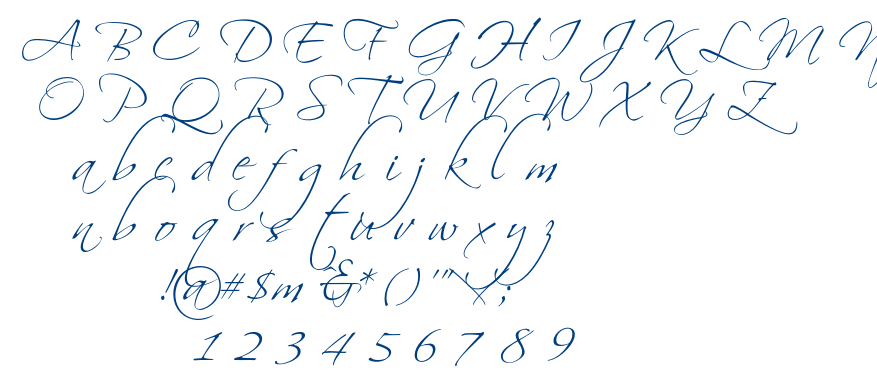 A B C D E F G H I J K L M N
O P Q R S T U V W X Y Z
a b c d e f g h i j k l m
n b o q r s t u v w x y z
! @ # $ m & * ( ) " ' ;
1 2 3 4 5 6 7 8 9